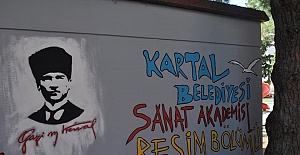 KARTAL
BELEDİYESİ
SANAT AKADEMİSİ
RESİM BÖLÜMÜ
Gazi M Kemal